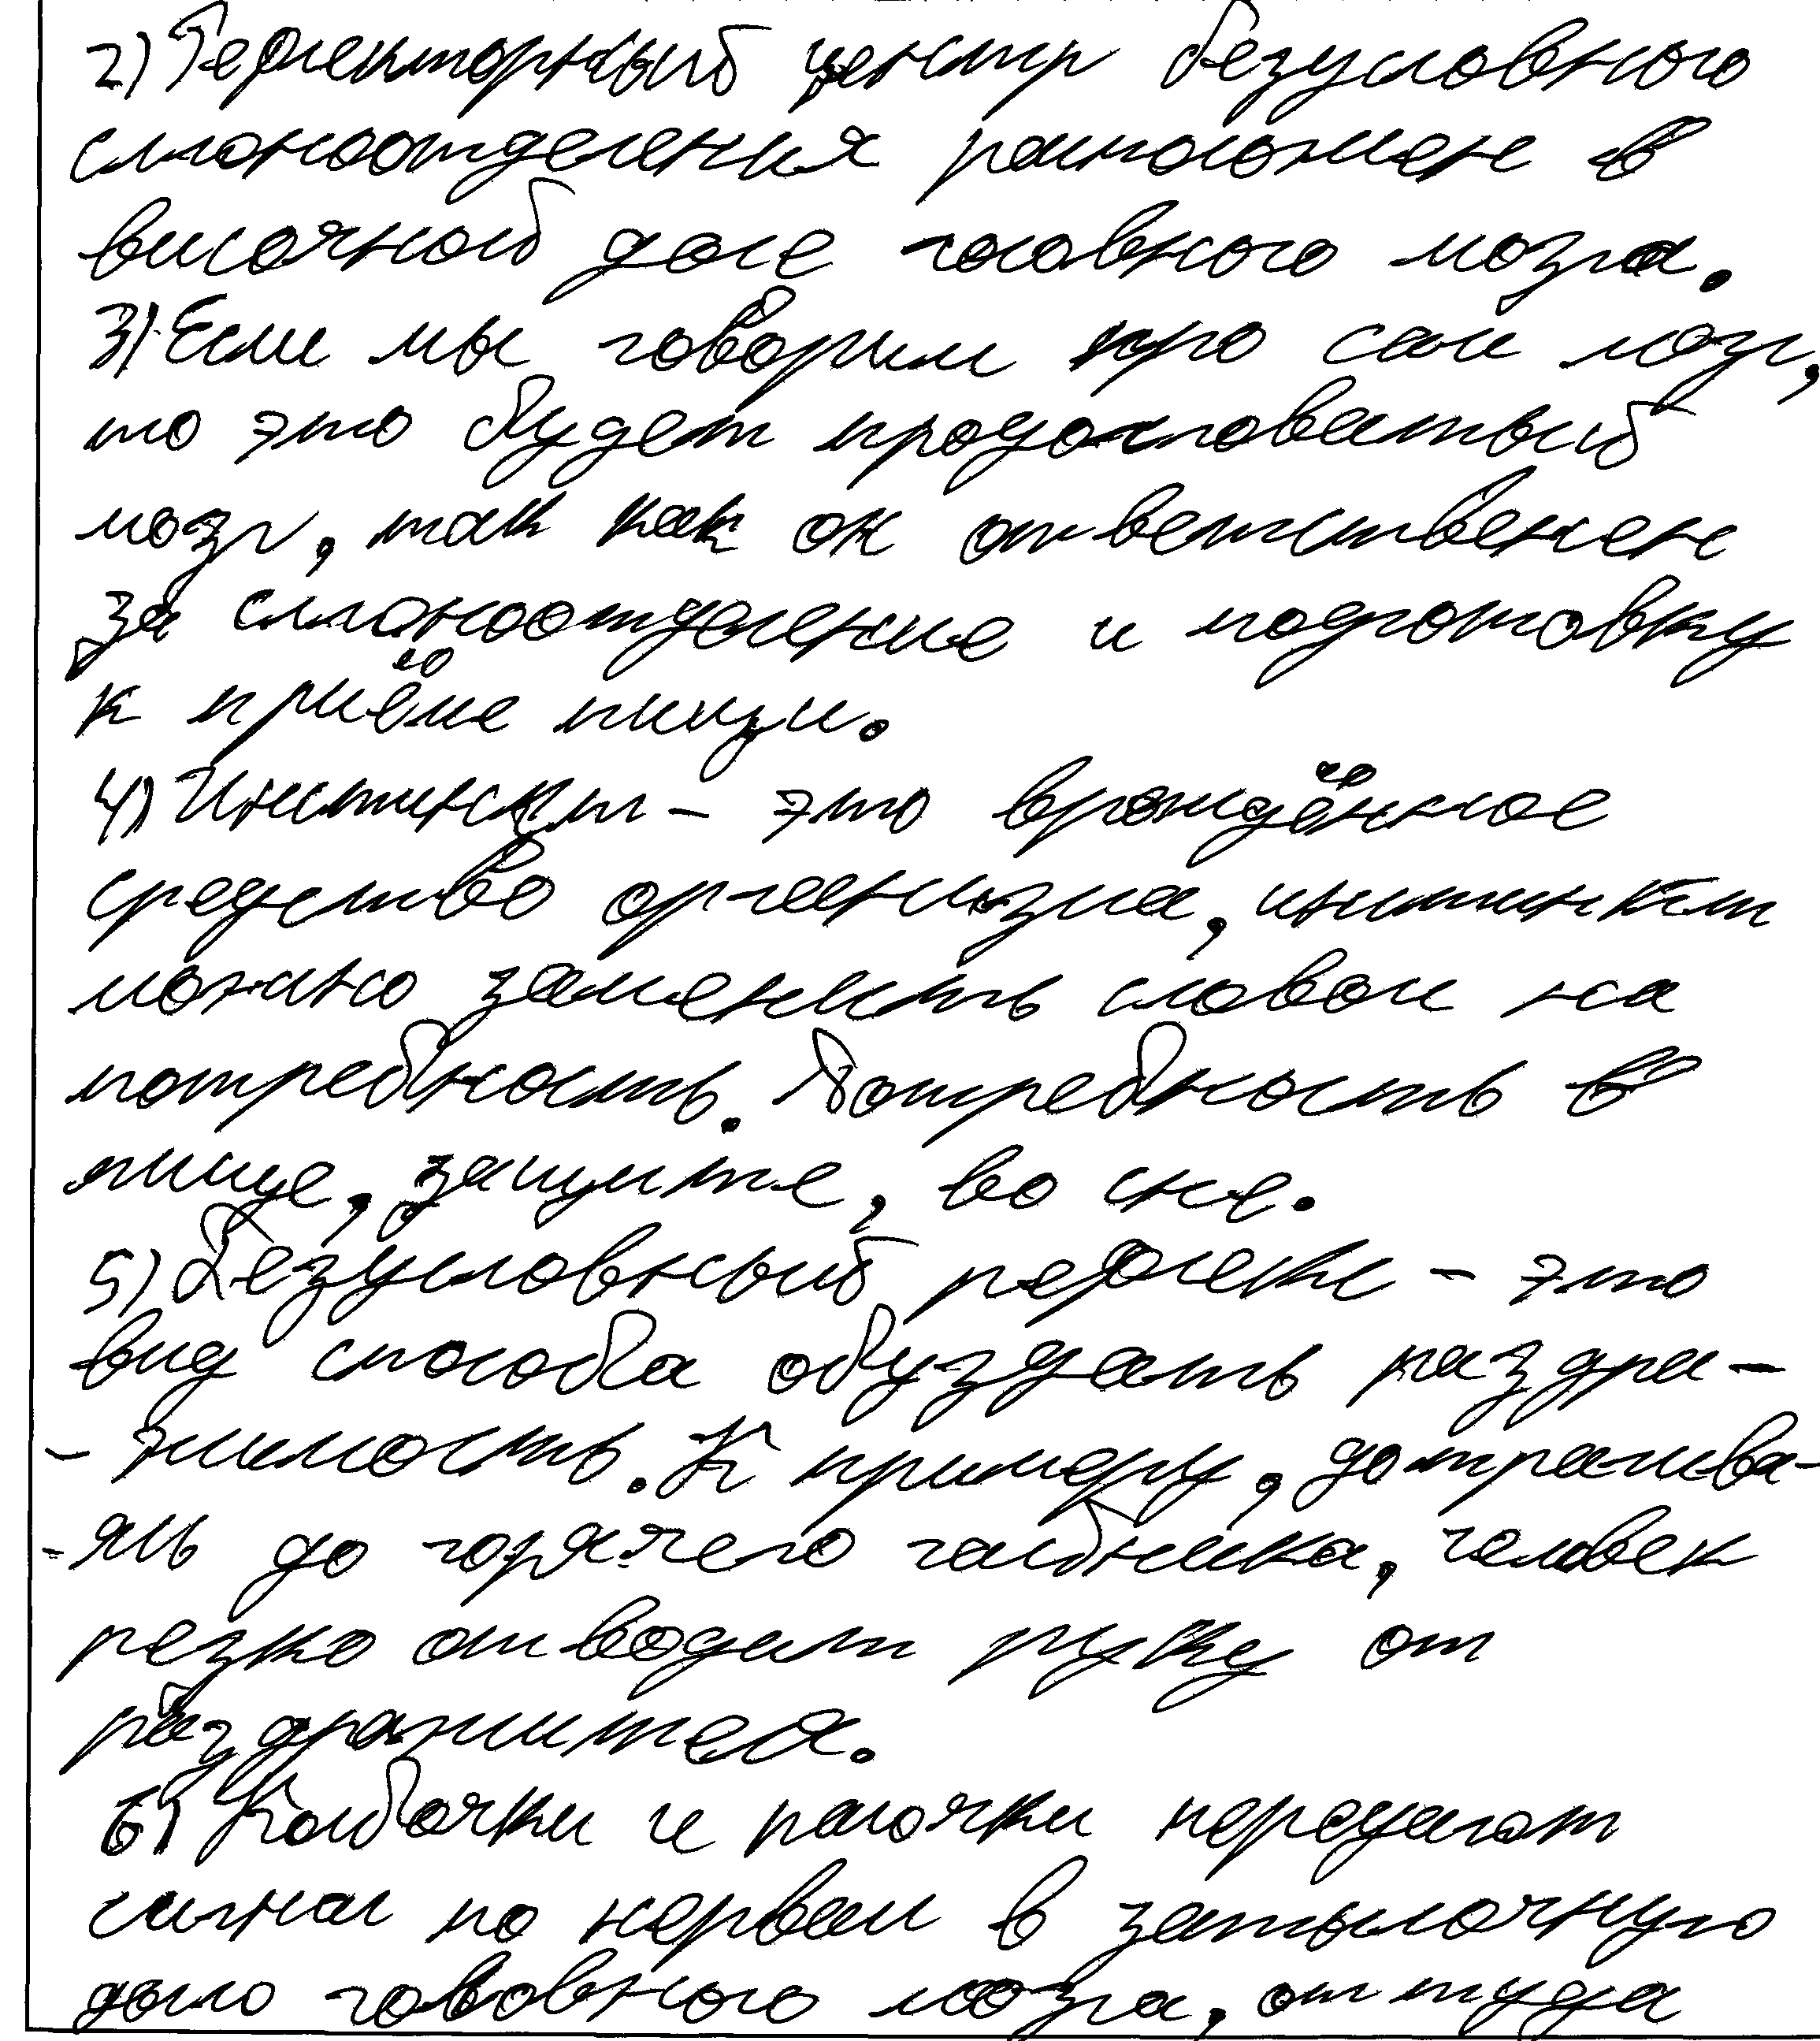 2) Рефлекторный центр безусловного
слюноотделения расположен в
височной доле головного мозга.
3) Если мы говорим про сам мозг,
то это будет продолговатый
мозг, так как он ответственен
за слюноотделение и подготовку
к приёме пищи.
4) Инстинкт - это врождённое
средство организма, инстинкт
можно заменить словом на
потребность. Потребность в
пище, защите, во сне.
5) Безусловный рефлекс - это
вид способа обуздать раздра-
-жимость. К примеру, дотрагива-
-ясь до горячего чайника, человек
резко отводит руку от
раздражителя.
6) Колбочки и палочки передают
сигнал по нервам в затылочную
долю головного мозга, оттуда